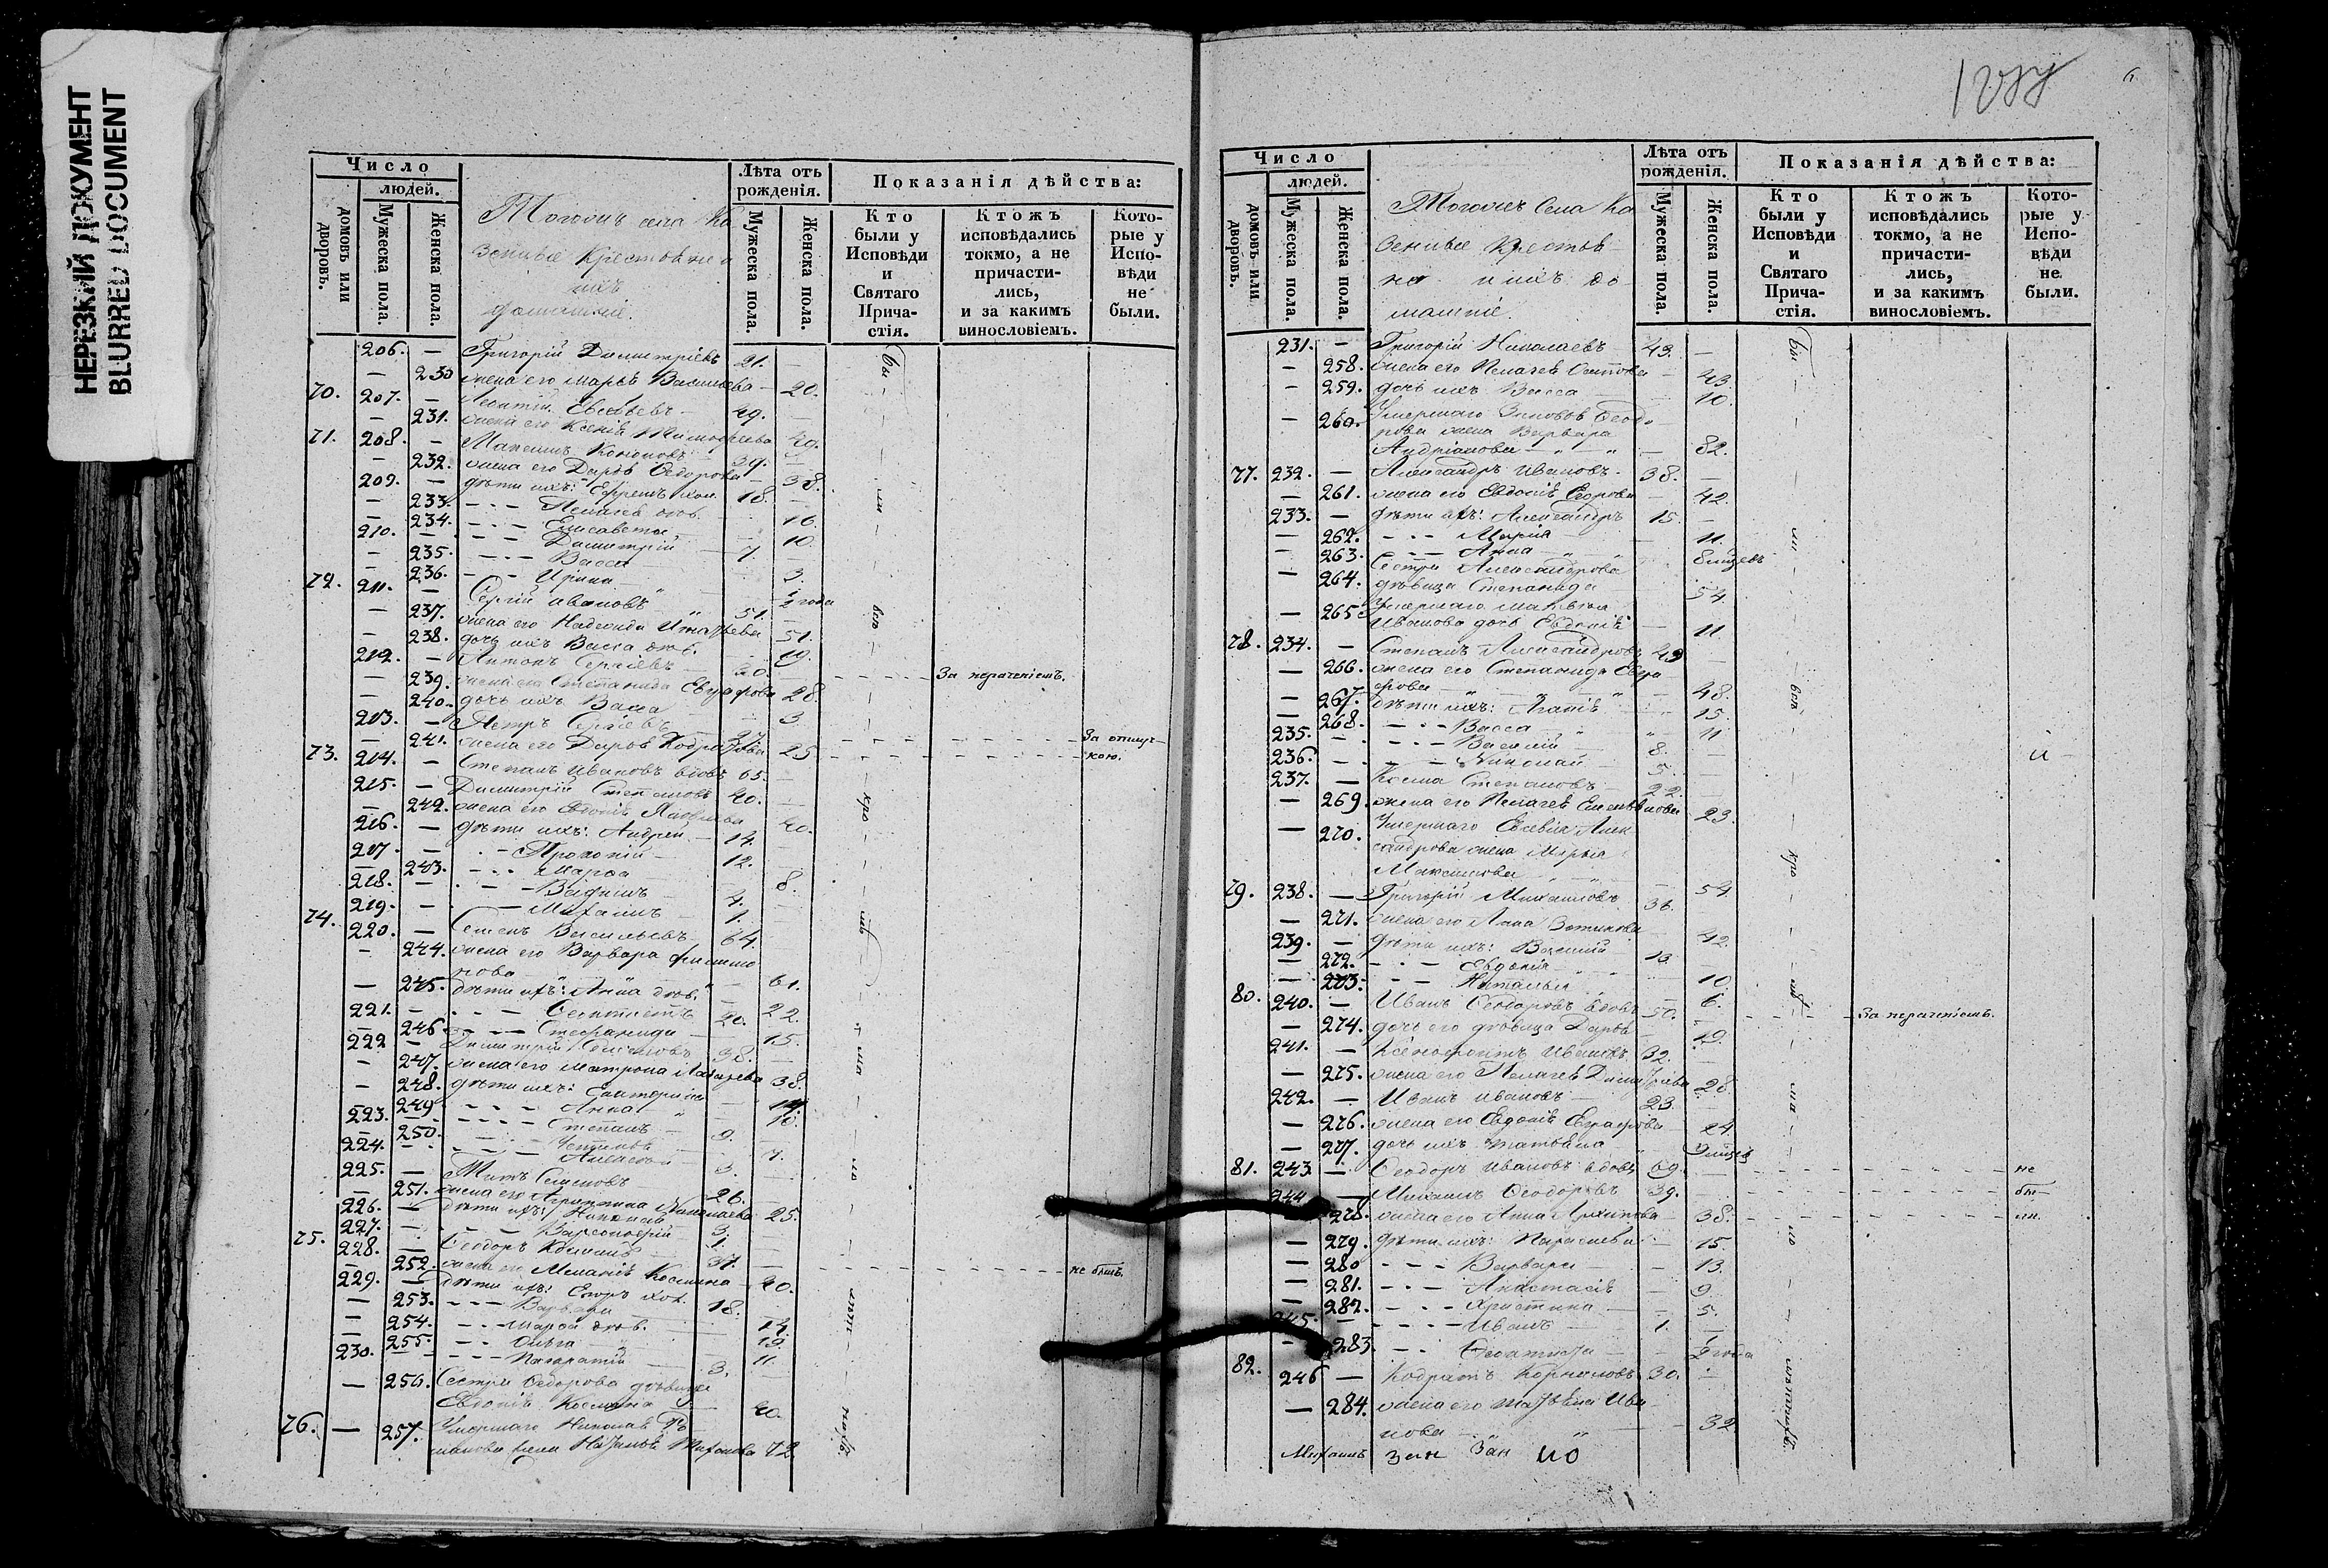 НЕРЕЗКИЙ ДОКУМЕНТ
BLURRED DOCUMENT
Число
людей.
домовъ или дворовъ.
Мужеска пола.
Женска пола.
Тогожъ села Ка
зенные Крестьяне и
ихъ
домашние.
Лѣта отъ рожденія.
Мужеска пола.
Женска пола.
Показанія дѣйства:
Кто были у Исповѣди и Святаго Прича-стія.
Ктожъ исповѣдались токмо, а не причасти-лись, и за какимъ винословіемъ.
Кото-рые у Испо-вѣди не были.
206. — Григорій Димитріевъ 21.
— 230 жена его Марѳа Васильева — 20.
70. 207. — Евсѣевъ 49.
— 231. жена его Ксенія Тимоѳеева 49.
71. 208. — Максимъ Кононовъ 39.
— 232. жена его Дарья Ѳедорова — 38.
209. — дѣти ихъ: Ефремъ хол. 18.
— 233. Пелагея дѣв. 16.
— 234. Елисавета 10.
210. — Димитрій 7.
— 235. Васса 3.
— 236. Ирина ½ года
72. 211. — Сергій Ивановъ 51.
— 237. жена его Надежда Игнатьева 51.
— 238. дочь ихъ Васса дѣв. 19.
212. — Антонъ Сергіевъ 20. За нераченіемъ.
— 239. жена его Степанида Евграфова 28.
— 240. дочь ихъ Васса 3
213. — Петръ Сергѣевъ За отлуч-
— 241. жена его Дарья Кодратова 25 кою.
73. 214. — Степанъ Ивановъ вдовъ 65.
215. — Димитрій Степановъ 40.
— 242. жена его Евдокія Яковлева 40.
216. — дѣти ихъ: Андрей 14.
217. — Прокопій 12.
— 243. Марѳа 8.
218. — 4.
219. — Михаилъ 1.
74. 220. — Семенъ Васильевъ 64.
— 244. жена его Варвара Филимо
нова 61.
— 245. дѣти ихъ: Анна дѣв. 22.
221. — 20.
— 246 Степанида 15.
222 — Димитрій Семеновъ 38.
— 247. жена его Матрона Лазарева 38.
— 248. дѣти ихъ: Екатерина 14.
— 249 Анна 10.
223. — Степанъ 9.
— 250. Устинья 7.
224. — Алексѣй 3.
225. — Титъ Семеновъ 26.
— 251. жена его Агриппина Николаева 25.
226. — дѣти ихъ: Николай 3.
227. — Варсонофій 1.
75. 228. — Ѳеодоръ 37. не былъ.
— 252. жена его Меланія Космина 40.
229. — дѣти ихъ: Егоръ хол. 18.
— 253. Варвара 14
— 254. Марѳа дѣв. 13
— 255 Ольга 11.
230. — 3.
— 256. Сестра Ѳедорова дѣвица
Евдокія Космина 40.
76. — 257. Умершаго Николая Ро
манова жена Наталья Тихонова 72.
1877
Число
людей.
домовъ или дворовъ.
Мужеска пола.
Женска пола.
Тогожъ Села Ка
зенные Крестья
не и ихъ до
машніе.
Лѣта отъ рожденія.
Мужеска пола.
Женска пола.
Показанія дѣйства:
Кто были у Исповѣди и Святаго Прича-стія.
Ктожъ исповѣдались токмо, а не причасти-лись, и за какимъ винословіемъ.
Кото-рые у Испо-вѣди не были.
231. — Григорій Николаевъ 43.
— 258. жена его Пелагея Осипова 43
— 259. дочь ихъ Васса 10.
— 260. Умершаго Зиновья Ѳеодо
рова жена Варвара
Андріанова 82.
77. 232. — Александръ Ивановъ 38.
— 261. жена его Евдокія Егорова 42.
233. — дѣти ихъ: Александръ 15.
— 262. Марія 11.
— 263. Анна 8 мѣсцевъ
— 264. Сестра Александрова
дѣвица Степанида 54.
— 265 Умершаго Матвѣя
Иванова дочь Евдокія 11.
78. 234. — Степанъ Александровъ 49
— 266. жена его Степанида Евгра
фова 48.
— 267. дѣти ихъ: Агафія 15.
— 268. Васса 11.
235. — Василій 8.
236. — Николай 5.
237. — Косма Степановъ 22.
— 269. жена его Пелагея Емельянова 23.
— 270. Умершаго Евсевія Алек
сандрова жена Марья
Максимова 54.
79. 238. — Григорій Михаиловъ 36.
— 271. жена его Анна Зотикова 42.
239. — дѣти ихъ: Василій 13.
— 272. Евдокія 10.
— 273. Наталья 6.
80. 240. — Иванъ Ѳеодоровъ вдовъ 50. За нераченіемъ.
— 274. дочь его дѣвица Дарья 19.
241. — Ксенофонтъ Ивановъ 32.
— 275. жена его Пелагея Димитріева 28.
242. — Иванъ Ивановъ 23.
— 276. жена его Евдокія Евграфова 24
— 277. дочь ихъ Татьяна
81. 243. — Ѳеодоръ Ивановъ вдовъ 69. не
244 — Михаилъ Ѳеодоровъ 39. бы-
— 278. жена его Анна Архипова 38. ли.
— 279. дѣти ихъ: Параскева 15.
— 280 Варвара 13.
— 281. Анастасія 9.
— 282. Христина 5.
245. — Иванъ 1.
— 283. ½ года
82. 246 — Кодратъ Корниловъ 30.
— 284. жена его Татьяна Ива
нова 32.
Михаилъ